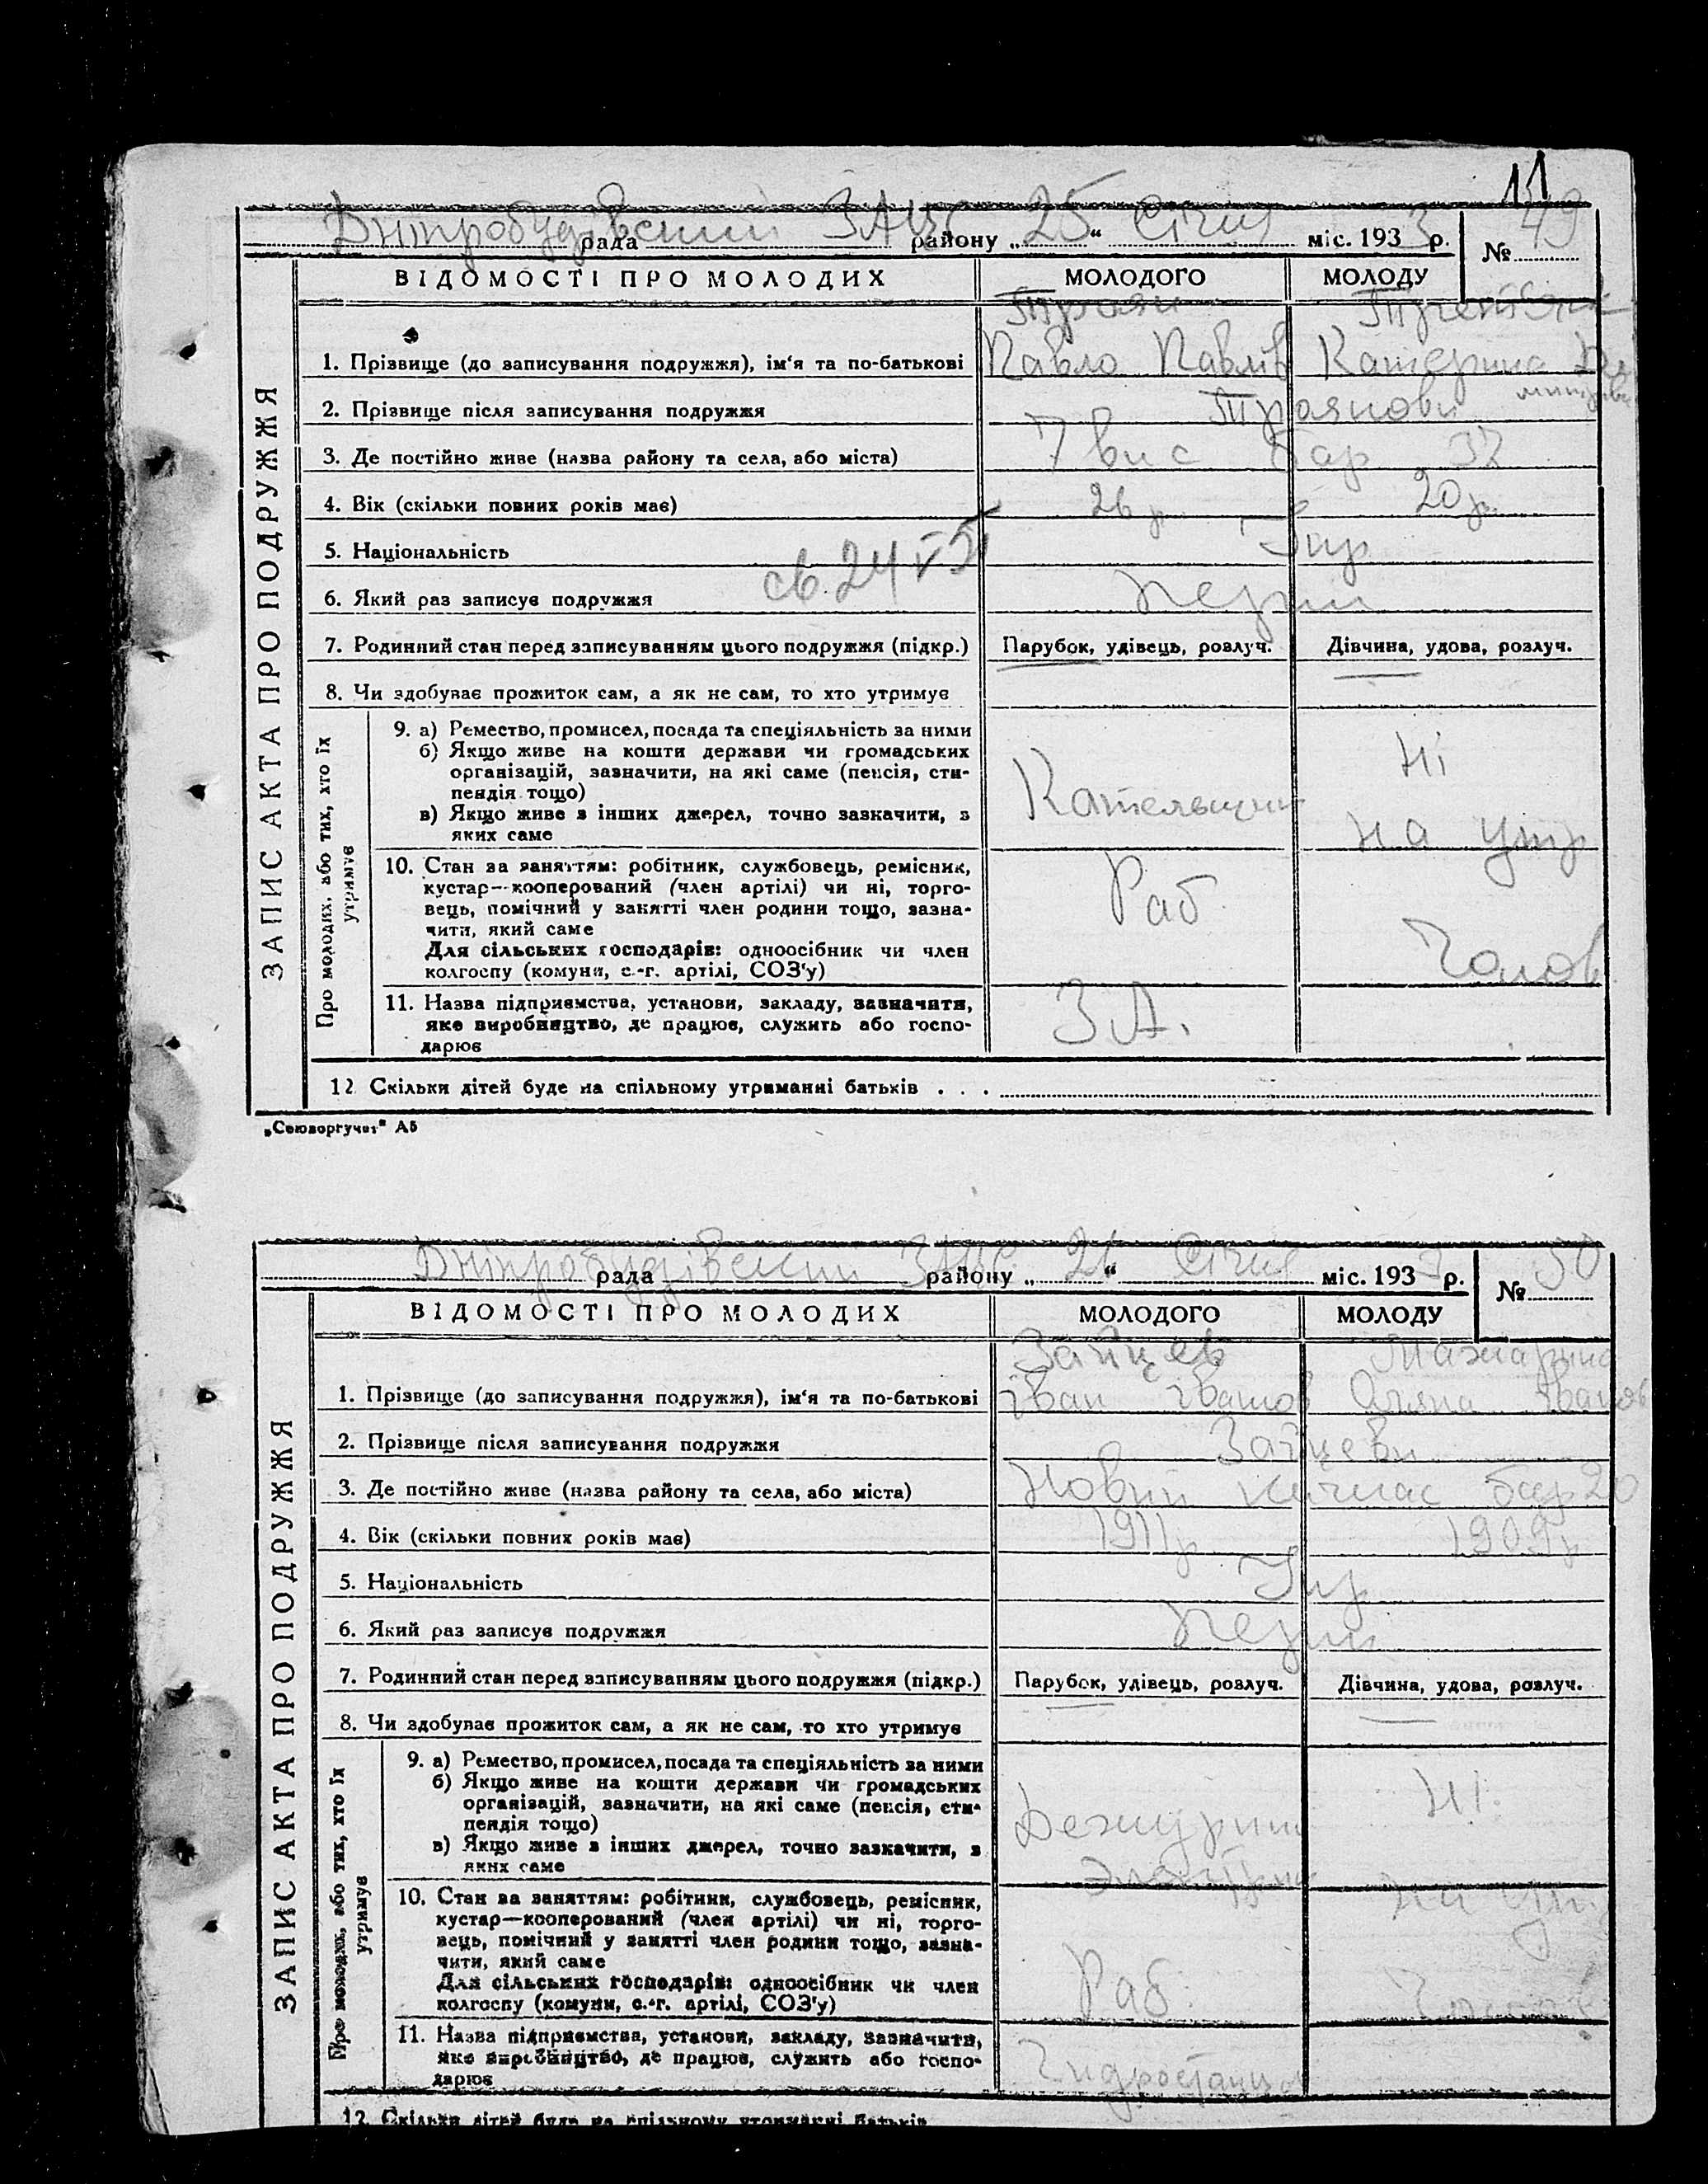 11
Дніпробудівський ЗАЦС
рада району „25“ Січня міс. 1933 р. № 49
ВІДОМОСТІ ПРО МОЛОДИХ МОЛОДОГО МОЛОДУ
Троян
1. Прізвище (до записування подружжя), ім‘я та по-батькові Павло Павлів Катерина
2. Прізвище після записування подружжя Троянови
3. Де постійно живе (назва району та села, або міста) 7 вис бар 32
4. Вік (скільки повних років має) 26 р 20 р.
5. Національність Укр
св. 24
6. Який раз записує подружжя Перш
7. Родинний стан перед записуванням цього подружжя (підкр.) Парубок, удівець, розлуч. Дівчина, удова, розлуч.
8. Чи здобуває прожиток сам, а як не сам, то хто утримує
ЗАПИС АКТА ПРО ПОДРУЖЖЯ
Про молодих, або тих, хто їх утримує
9. а) Ремество, промисел, посада та спеціяльність за ними
б) Якщо живе на кошти держави чи громадських
організацій, зазначити, на які саме (пенсія, сти-
пендія тощо)
в) Якщо живе з інших джерел, точно зазначити, з
яких саме
Ні
Кательщик на утр
10. Стан за заняттям: робітник, службовець, ремісник,
кустар—кооперований (член артілі) чи ні, торго-
вець, помічний у занятті член родини тощо, зазна-
чити, який саме
Для сільських господарів: одноосібник чи член
колгоспу (комуни, с.-г. артілі, СОЗ‘у)
Раб Чолов
11. Назва підприємства, установи, закладу, зазначити,
яке виробництво, де працює, служить або госпо-
дарює
З А.
12. Скільки дітей буде на спільному утриманні батьків . . .
„Союзоргучет“ А5
Дніпробудівський ЗАЦС
рада району „26“ Січня міс. 1933 р. № 50
ВІДОМОСТІ ПРО МОЛОДИХ МОЛОДОГО МОЛОДУ
Зайцев
1. Прізвище (до записування подружжя), ім‘я та по-батькові Іван Іванов Іванов
2. Прізвище після записування подружжя Зайцеви
3. Де постійно живе (назва району та села, або міста) Новий Кичкас бар 20
4. Вік (скільки повних років має) 1911 р 1909 р
5. Національність Укр
6. Який раз записує подружжя Перш
7. Родинний стан перед записуванням цього подружжя (підкр.) Парубок, удівець, розлуч. Дівчина, удова, розлуч.
8. Чи здобуває прожиток сам, а як не сам, то хто утримує
ЗАПИС АКТА ПРО ПОДРУЖЖЯ
Про молодих, або тих, хто їх утримує
9. а) Ремество, промисел, посада та спеціяльність за ними
б) Якщо живе на кошти держави чи громадських
організацій, зазначити, на які саме (пенсія, сти-
пендія тощо)
в) Якщо живе з інших джерел, точно зазначити, з
яких саме
Ні.
на утр.
10. Стан за заняттям: робітник, службовець, ремісник,
кустар—кооперований (член артілі) чи ні, торго-
вець, помічний у занятті член родини тощо, зазна-
чити, який саме
Для сільських господарів: одноосібник чи член
колгоспу (комуни, с.-г. артілі, СОЗ‘у)
Раб. Чолов
11. Назва підприємства, установи, закладу, зазначити,
яке виробництво, де працює, служить або госпо-
дарює
Гидростанц
12. Скільки дітей буде на спільному утриманні батьків